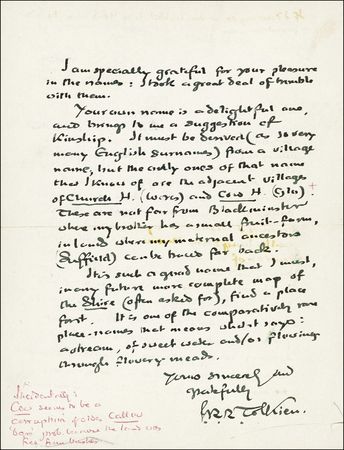 I am specially grateful for your pleasure
in the names: I took a great deal of trouble
with them.
Your own name is a delightful one,
and brings to me a suggestion of
Kinship. It must be derived (as so very
many English surnames) from a village
name, but the only ones of that name
that I know of are the adjacent villages
of Church H. (Worcs) and Cow H. (Glo) +
These are not far from Blackminster
where my brother has a small fruit-farm,
in land where my maternal ancestors
(Suffield) can be traced far back.
It is such a good name that I must,
in any future more complete map of
the Shire (often asked for), find a place
for it. It is one of the comparatively rare
place-names that means what it says:
a stream, of sweet water and/or flowing
through flowery meads.
Yours sincerely and
gratefully
J.R.R. Tolkien.
+
Incidentally
Cow seems to be a
corruption of older Callow
'bare' prob. because the land was
less